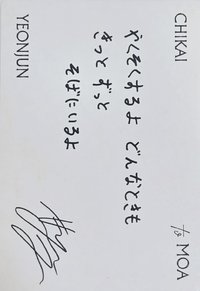 CHIKAI
to MOA
やくそくするよ どんなときも
きっと ずっと
そばにいるよ
YEONJUN